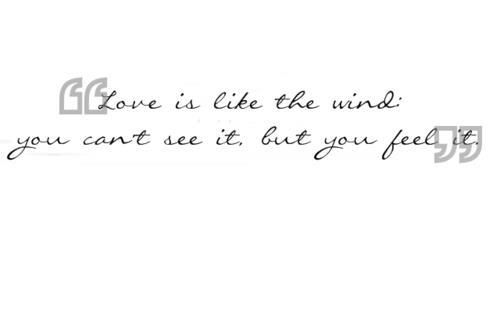 “Love is like the wind;
you can't see it, but you feel it.”